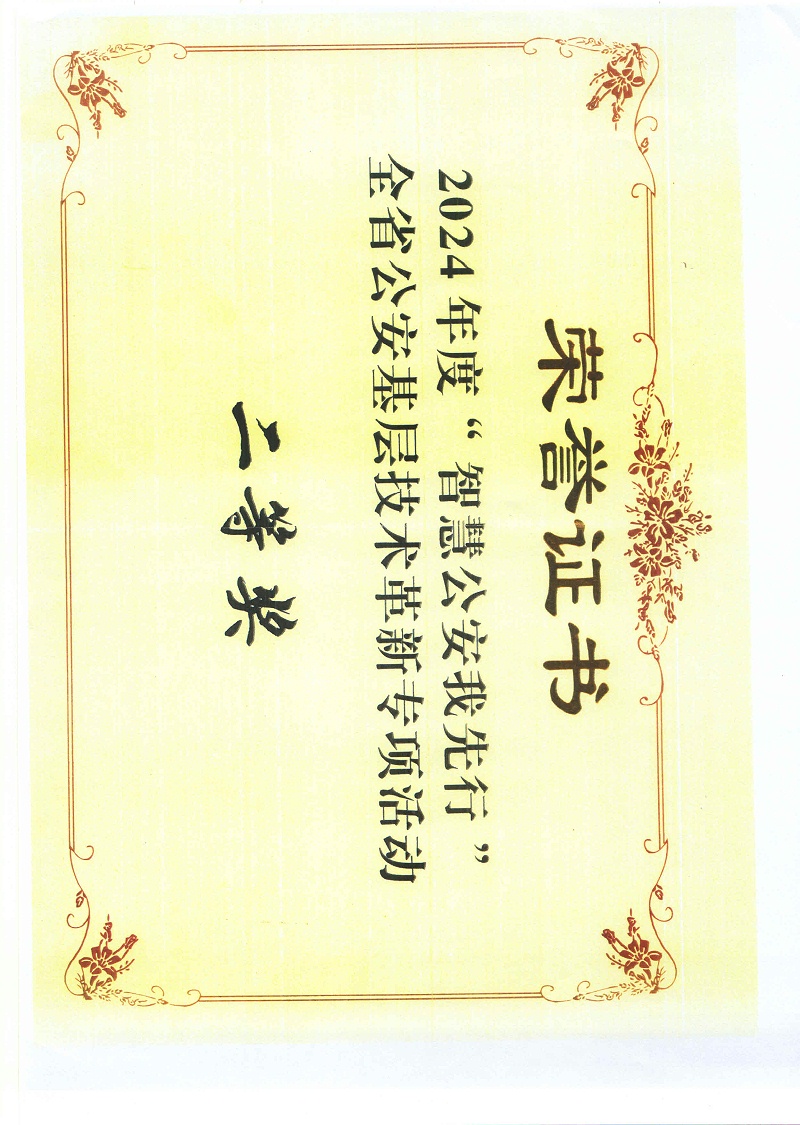 荣誉证书
2024年度“智慧公安我先行”
全省公安基层技术革新专项活动
二等奖